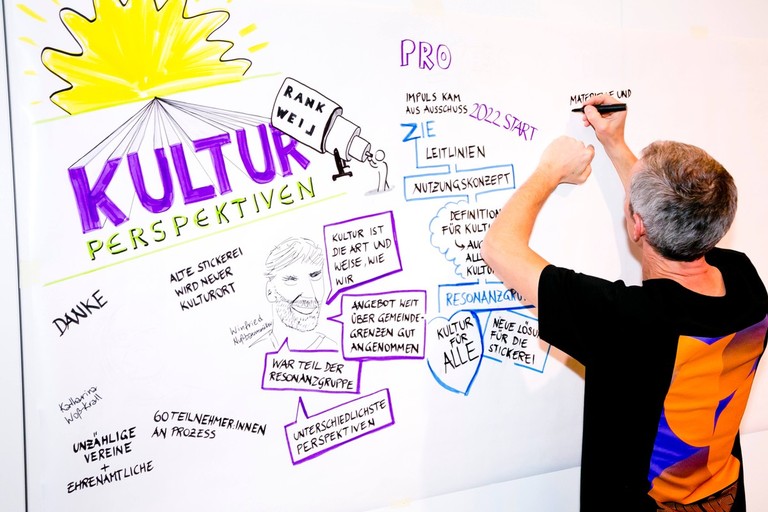 RANK
WEIL
KULTUR
PERSPEKTIVEN
DANKE
ALTE STICKEREI
WIRD NEUER
KULTURORT
Winfried
KULTUR IST
DIE ART UND
WEISE, WIE
WIR
ANGEBOT WEIT
ÜBER GEMEINDE-
GRENZEN GUT
ANGENOMMEN
WAR TEIL DER
RESONANZGRUPPE
UNTERSCHIEDLICHSTE
PERSPEKTIVEN
Katharina
60 TEILNEHMER:INNEN
AN PROZESS
UNZÄHLIGE
VEREINE
+
EHRENAMTLICHE
PRO
IMPULS KAM
AUS AUSSCHUSS
2022 START
ZIE
LEITLINIEN
NUTZUNGSKONZEPT
DEFINITION
FÜR KULTU
↳ AUC
ALL
KULTU
RESONANZGRU
KULTUR
FÜR
ALLE
NEUE LÖSU
FÜR DIE
STICKEREI
UND